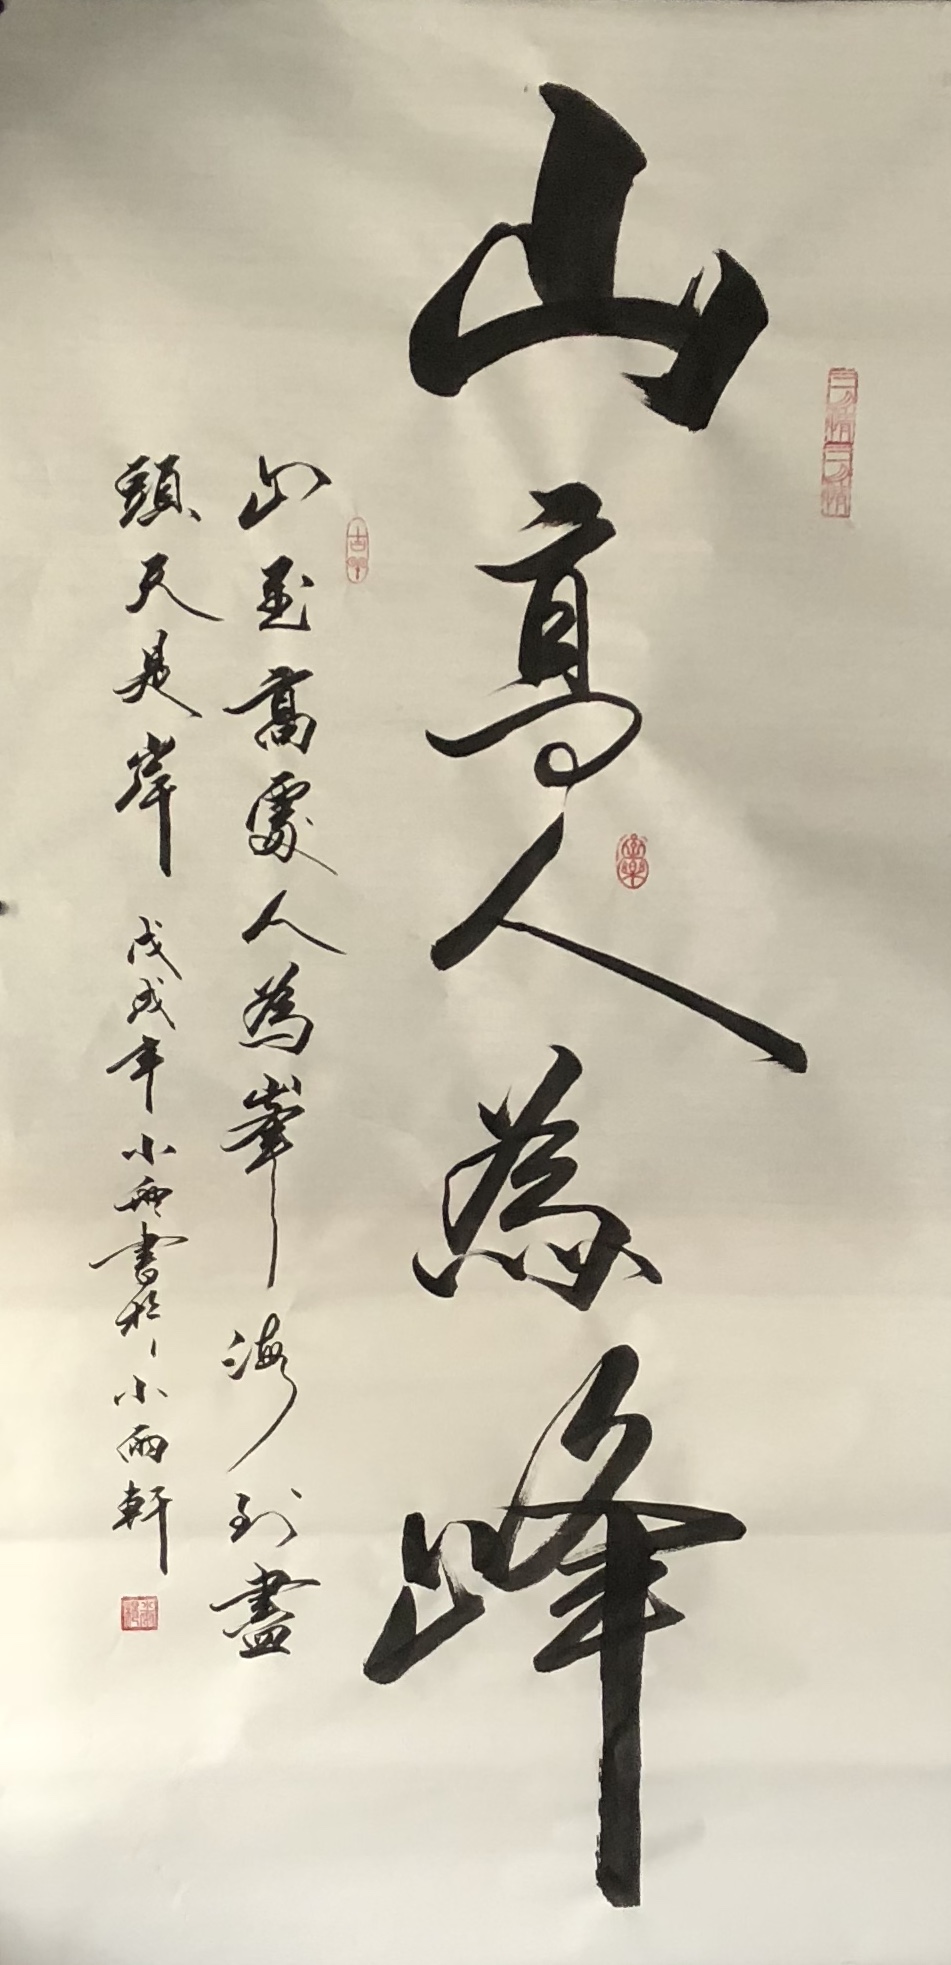 山高人為峰
山至高處人為峯海到盡
頭天是岸 戊戌年小雨書於小雨軒